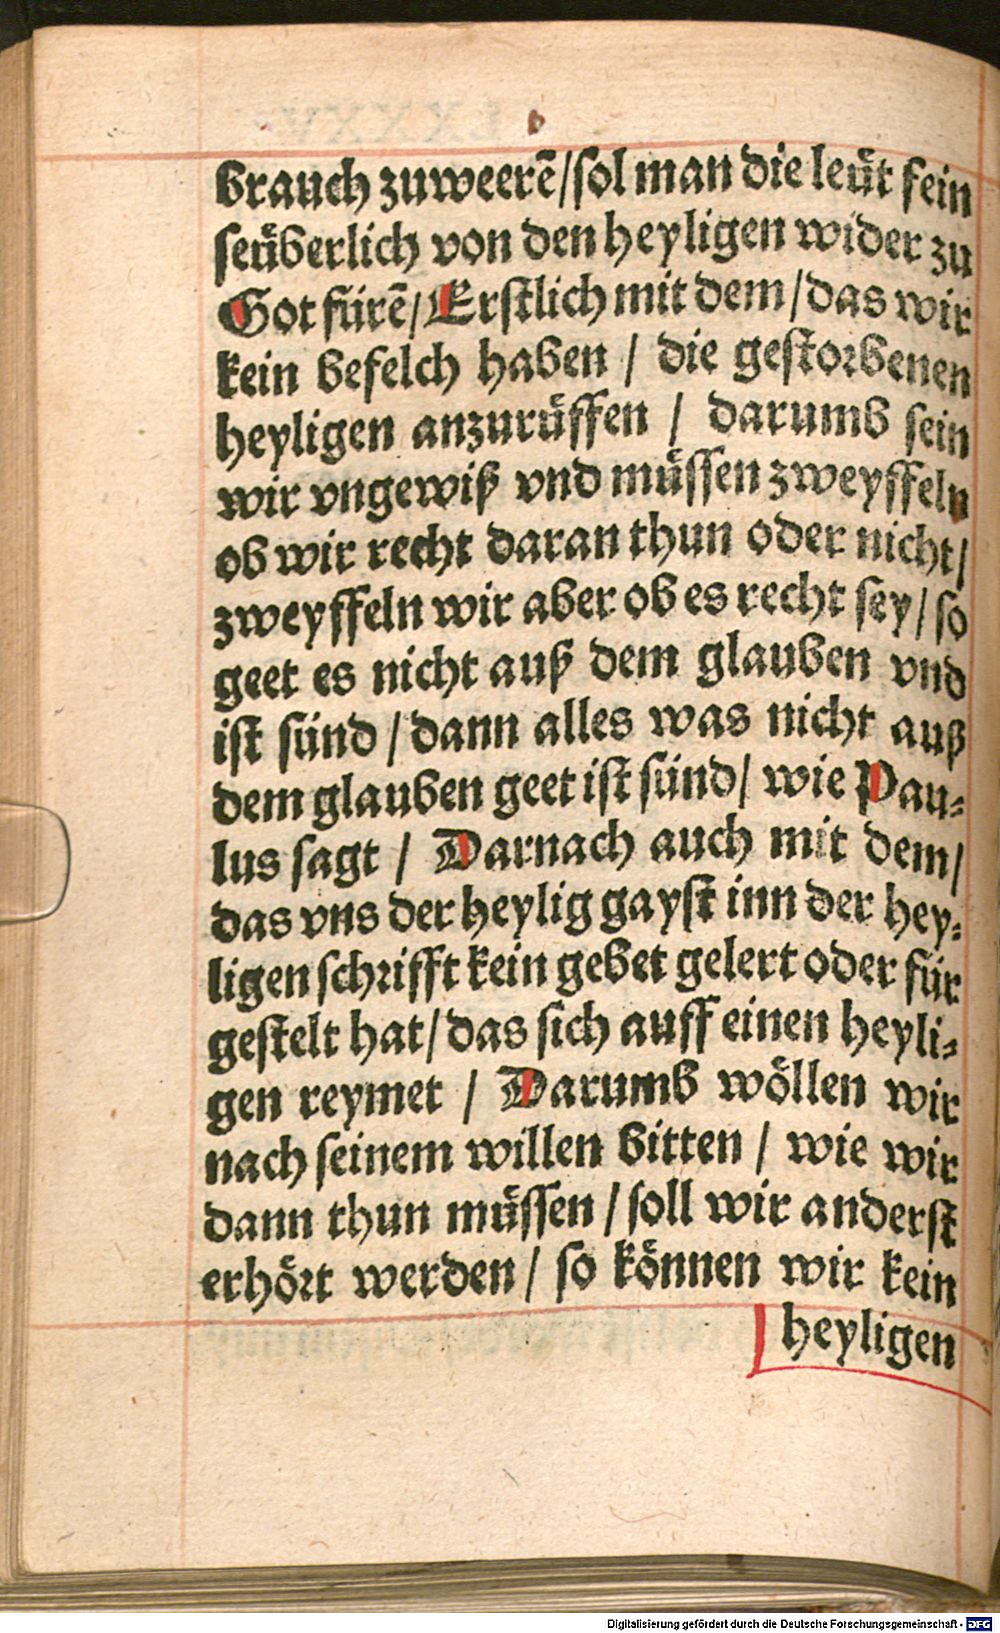 brauch zuweerẽ/sol man die leüt fein
seüberlich von den heyligen wider zu
Got fürẽ/ Erstlich mit dem/das wir
kein befelch haben / die gestorbenen
heyligen anzurüffen / darumb sein
wir vngewiß vnd müssen zweyffeln
ob wir recht daran thun oder nicht/
zweyffeln wir aber ob es recht sey/so
geet es nicht auß dem glauben vnd
ist sünd/dann alles was nicht auß
dem glauben geet ist sünd/ wie Pau⸗
lus sagt / Darnach auch mit dem/
das vns der heylig gayst inn der hey⸗
ligen schrifft kein gebet gelert oder für
gestelt hat/das sich auff einen heyli⸗
gen reymet / Darumb wöllen wir
nach seinem willen bitten / wie wir
dann thun müssen/soll wir anderst
erhört werden/ so können wir kein
heyligen
Digitalisierung gefördert durch die Deutsche Forschungsgemeinschaft - DFG